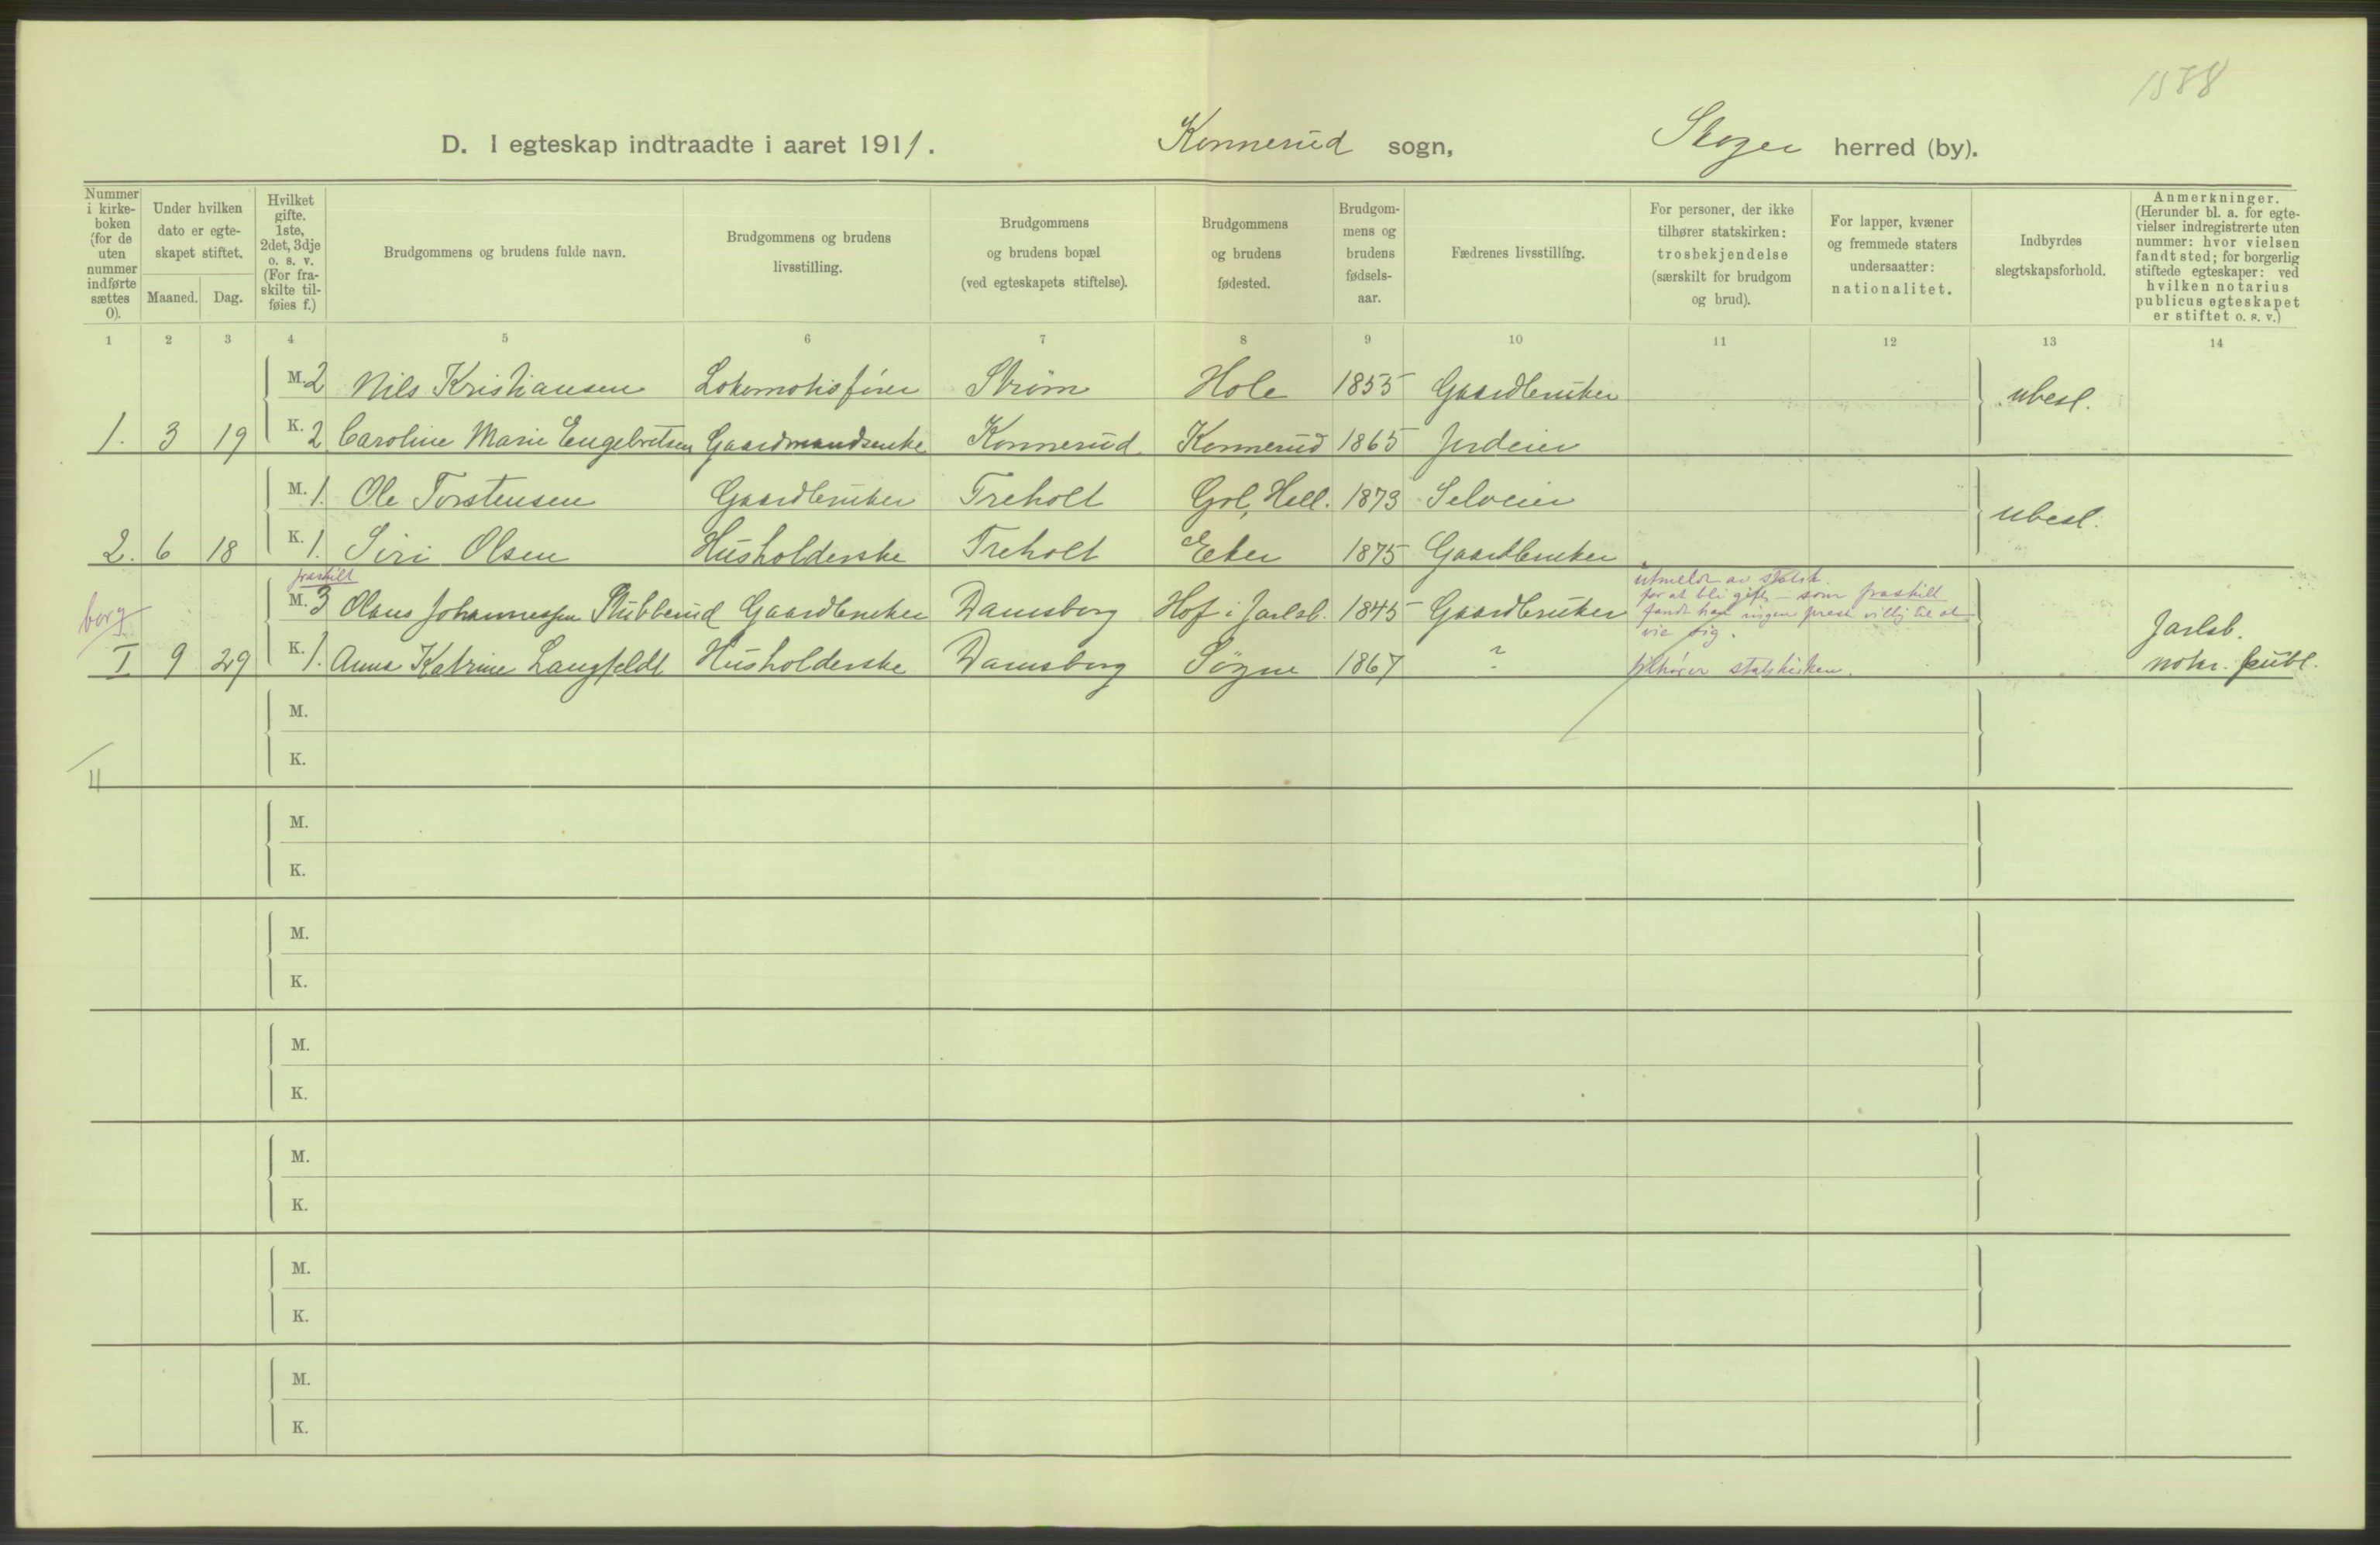 1588
D. I egteskap indtraadte i aaret 1911. Konnerud sogn, Skoger herred (by).
Nummer i kirke-boken (for de uten nummer indførte sættes 0).
Under hvilken dato er egte-skapet stiftet.
Maaned. Dag.
Hvilket gifte. 1ste, 2det, 3dje o. s. v. (For fra-skilte til-føies f.)
Brudgommens og brudens fulde navn.
Brudgommens og brudens livsstilling.
Brudgommens og brudens bopæl (ved egteskapets stiftelse).
Brudgommens og brudens fødested.
Brudgom-mens og brudens fødsels-aar.
Fædrenes livsstilling.
For personer, der ikke tilhører statskirken: trosbekjendelse (særskilt for brudgom og brud).
For lapper, kvæner og fremmede staters undersaatter: nationalitet.
Indbyrdes slegtskapsforhold.
Anmerkninger. (Herunder bl. a. for egte-vielser indregistrerte uten nummer: hvor vielsen fandt sted; for borgerlig stiftede egteskaper: ved hvilken notarius publicus egteskapet er stiftet o. s. v.)
1 2 3 4 5 6 7 8 9 10 11 12 13 14
M. 2 Nils Kristiansen Lokomotivfører Strøm Hole 1855 Gaardbruker ubesl.
1. 3 19 K. 2 Caroline Marie Engebretsen Gaardmandsenke Konnerud Konnerud 1865 Jordeier
M. 1. Ole Torstensen Gaardbruker Treholt Gol, Hall. 1873 Selveier ubesl.
2. 6 18 K. 1. Siri Olsen Husholderske Treholt Eker 1875 Gaardbruker
fraskilt
borg M. 3 Olaus Johannessen Stubberud Gaardbruker Damsborg Hof i Jarlsb. 1845 Gaardbruker
utmeldt av statsk.
for at bli gift, – som fraskilt
fandt han ingen prest villig til at
vie sig.
Jarlsb.
I 9 29 K. 1. Anna Katrine Langfeldt Husholderske Damsborg Søgne 1867 ? tilhører statskirken. notar. publ.
M.
K.
4
M.
K.
M.
K.
M.
K.
M.
K.
M.
K.
M.
K.